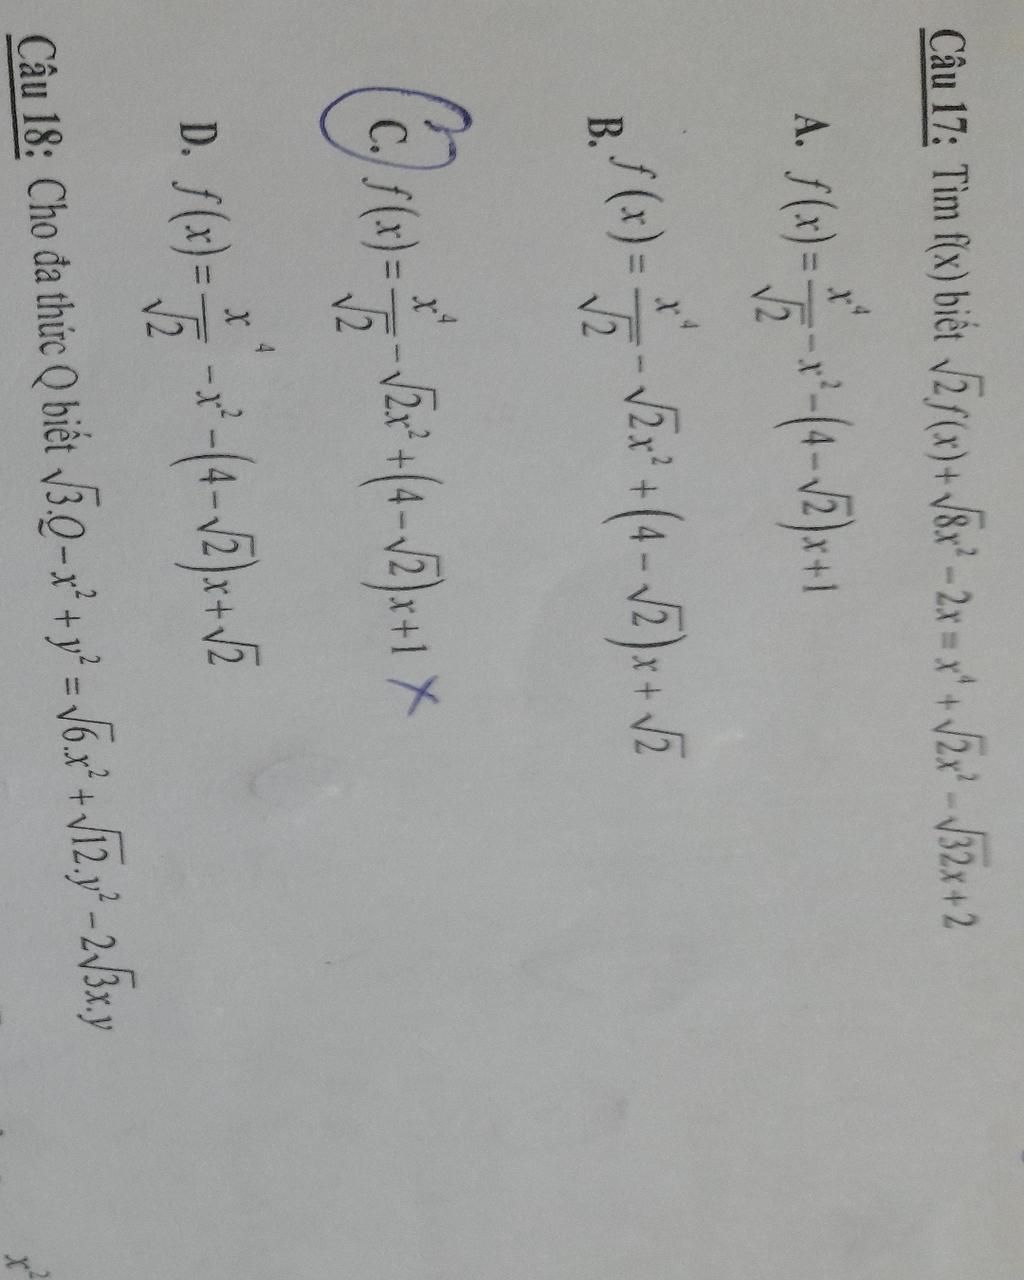 Câu 17: Tìm f(x) biết √2f(x)+√8x² − 2x = x⁴ + √2x² − √32x + 2
A. f(x) = x⁴/√2 − x² − (4 − √2)x + 1
B. f(x) = x⁴/√2 − √2x² + (4 − √2)x + √2
C. f(x) = x⁴/√2 − √2x² + (4 − √2)x + 1 X
D. f(x) = x⁴/√2 − x² − (4 − √2)x + √2
Câu 18: Cho đa thức Q biết √3.Q − x² + y² = √6.x² + √12.y² − 2√3x.y
x²